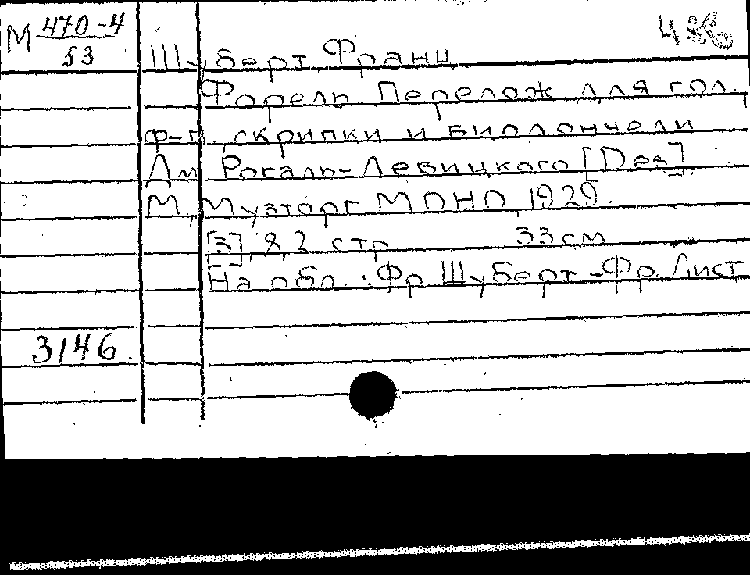 М 470-4
53
Шуберт, Франц
Форель. Перелож. для гол.,
ф-п., скрипки и виолончели
Дм. Рогаль-Левицкого [Des]
М., Музторг МОНО, 1929.
[3], 8, 2 стр. 33 см
На обл.: Фр. Шуберт - Фр. Лист
3146